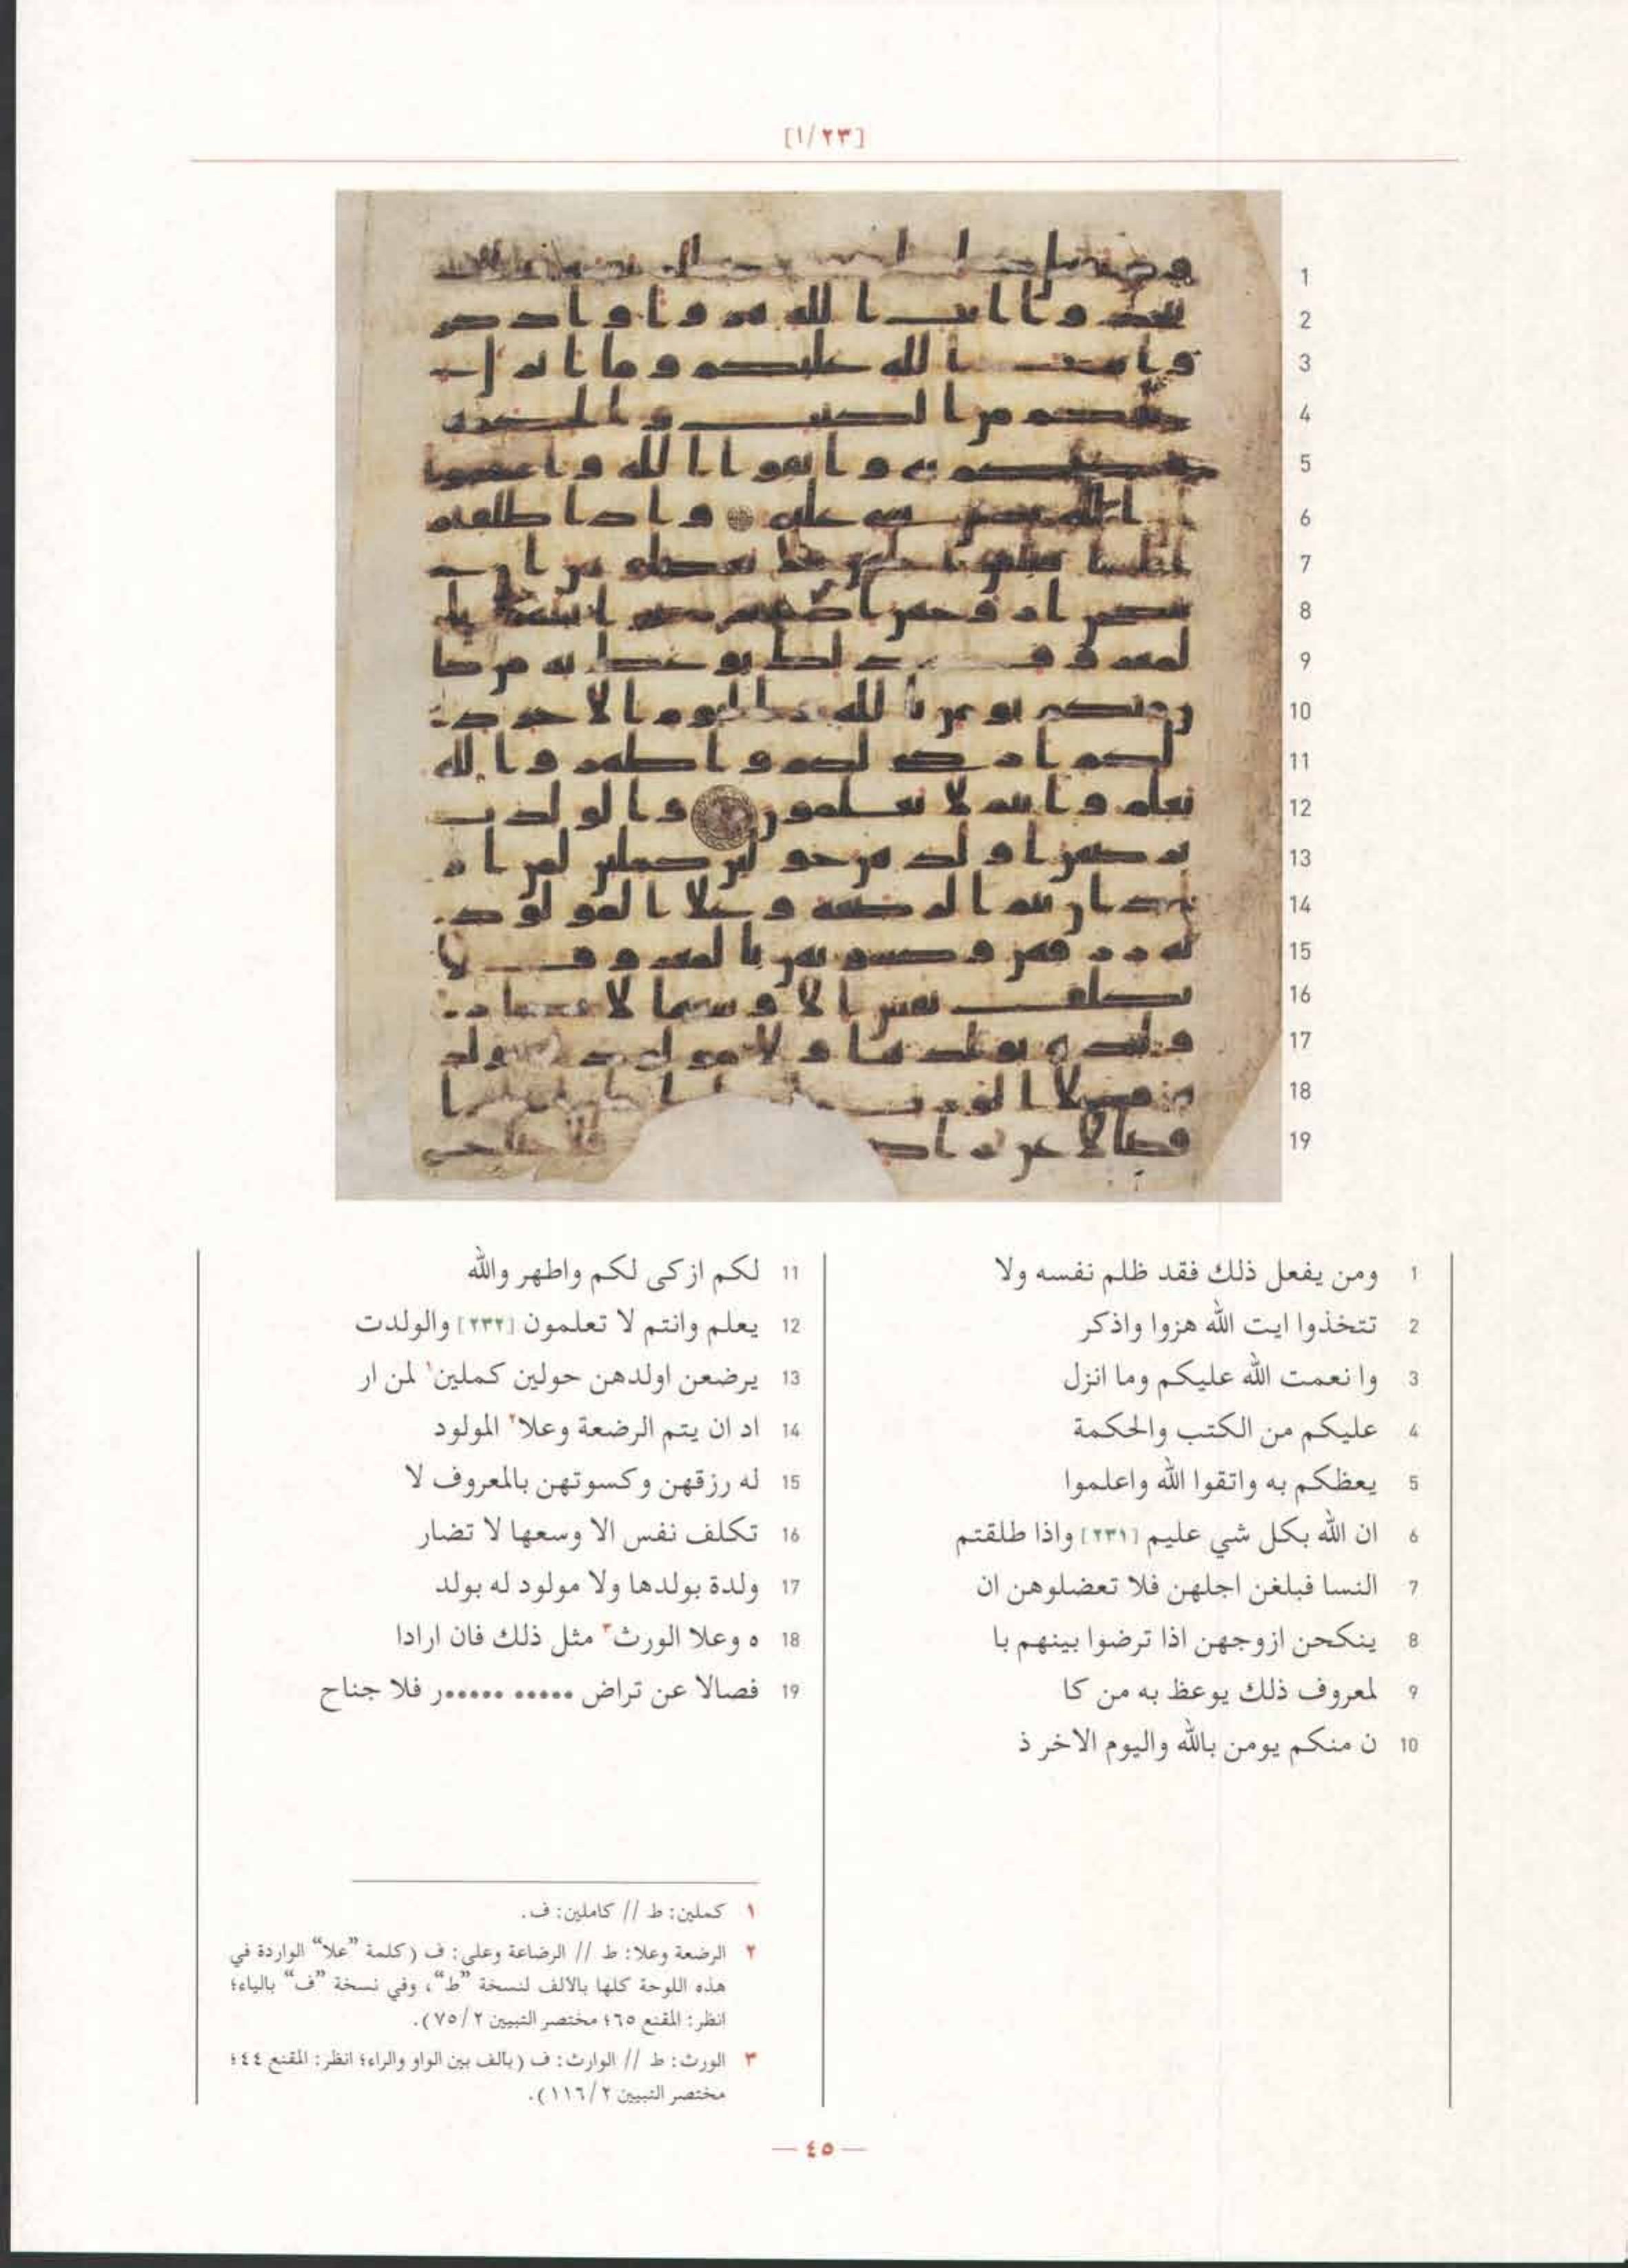 [١/٢٣]
1
2
3
4
5
6
7
8
9
10
11
12
13
14
15
16
17
18
19
1 ومن يفعل ذلك فقد ظلم نفسه ولا
2 تتخذوا ايت الله هزوا واذكر
3 وا نعمت الله عليكم وما انزل
4 عليكم من الكتب والحكمة
5 يعظكم به واتقوا الله واعلموا
6 ان الله بكل شي عليم [٢٣١] واذا طلقتم
7 النسا فبلغن اجلهن فلا تعضلوهن ان
8 ينكحن ازوجهن اذا ترضوا بينهم با
9 لمعروف ذلك يوعظ به من كا
10 ن منكم يومن بالله واليوم الاخر ذ
11 لكم ازكى لكم واطهر والله
12 يعلم وانتم لا تعلمون [٢٣٢] والولدت
13 يرضعن اولدهن حولين كملين١ لمن ار
14 اد ان يتم الرضعة وعلا٢ المولود
15 له رزقهن وكسوتهن بالمعروف لا
16 تكلف نفس الا وسعها لا تضار
17 ولدة بولدها ولا مولود له بولد
18 ه وعلا الورث٣ مثل ذلك فان ارادا
19 فصالا عن تراض ••••• •••••ر فلا جناح
١ كملين: ط // كاملين: ف.
٢ الرضعة وعلا: ط // الرضاعة وعلى: ف (كلمة “علا“ الواردة في
هذه اللوحة كلها بالالف لنسخة “ط“، وفي نسخة “ف“ بالياء؛
انظر: المقنع ٦٥؛ مختصر التبيين ٢/ ٧٥).
٣ الورث: ط // الوارث: ف (بألف بين الواو والراء؛ انظر: المقنع ٤٤؛
مختصر التبيين ٢/ ١١٦).
— ٤٥ —